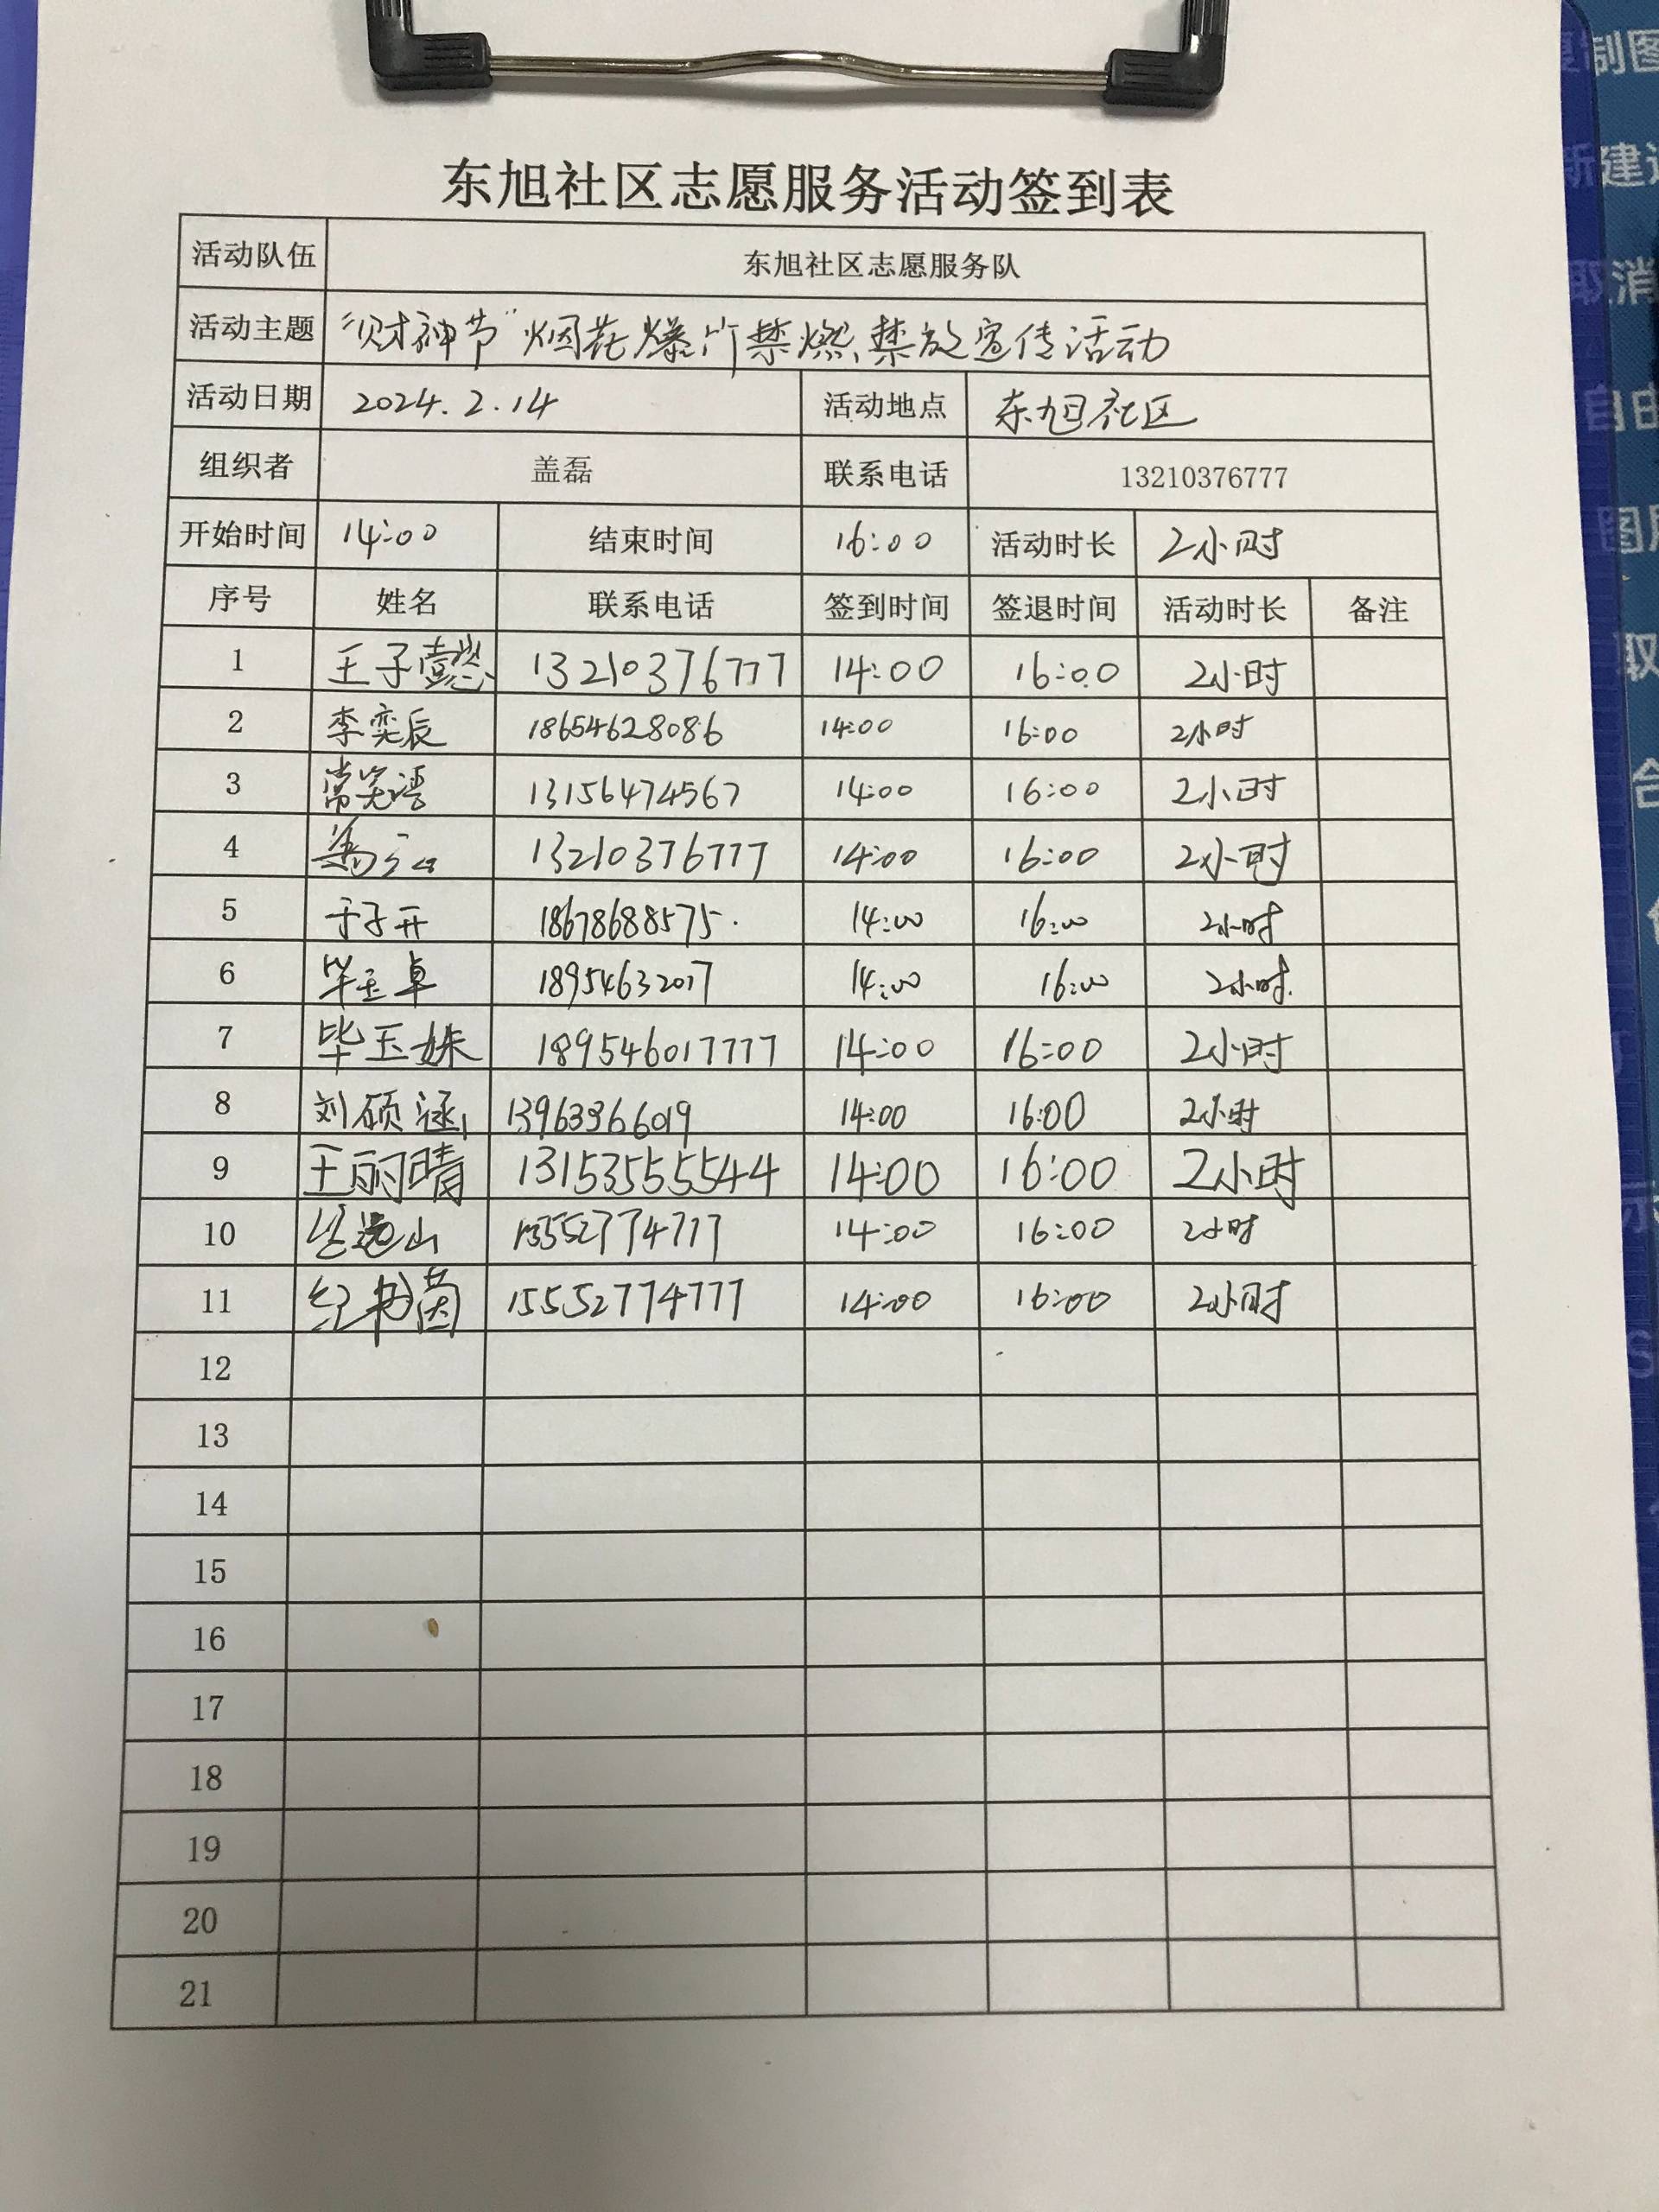 东旭社区志愿服务活动签到表
活动队伍 东旭社区志愿服务队
活动主题 “财神节”烟花爆竹禁燃、禁放宣传活动
活动日期 2024.2.14 活动地点 东旭社区
组织者 盖磊 联系电话 13210376777
开始时间 14:00 结束时间 16:00 活动时长 2小时
序号 姓名 联系电话 签到时间 签退时间 活动时长 备注
1 王子懿 13210376777 14:00 16:00 2小时
2 李奕辰 18654628086 14:00 16:00 2小时
3 常笑语 13156474567 14:00 16:00 2小时
4 13210376777 14:00 16:00 2小时
5 于子开 18678688575 14:00 16:00 2小时
6 毕玉卓 18954632017 14:00 16:00 2小时
7 毕玉姝 189546017777 14:00 16:00 2小时
8 刘硕涵 13963366019 14:00 16:00 2小时
9 王丽晴 13153555544 14:00 16:00 2小时
10 14:00 16:00 2小时
11 15552774777 14:00 16:00 2小时
12
13
14
15
16
17
18
19
20
21
制图
新建
取消
自由
图
取
合